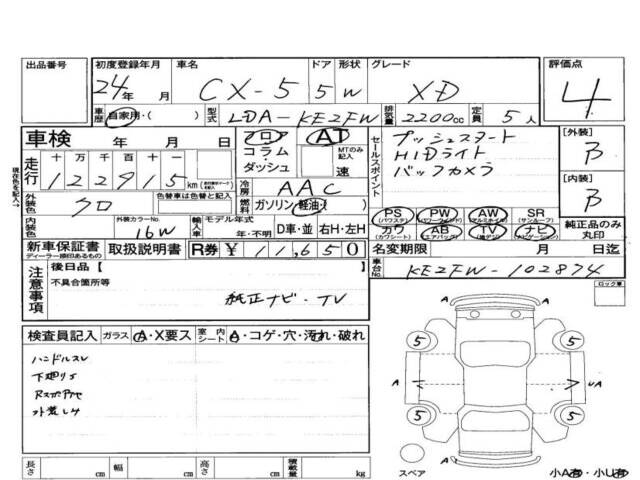 出品番号 初度登録年月 車名 ドア 形状 グレード 評価点
24年 月 CX-5 5 W XD 4
車歴 自家用・( ) 型式 LDA-KE2FW 排気量 2200cc 定員 5人
車検 年 月 日 フロア コラム・ダッシュ AT MTのみ記入 速
セールスポイント プッシュスタート
HIDライト
バックカメラ
[外装] B
[内装] B
現在色を記入→
走行 十万千百十一
122915km
冷房 AAC
外装色 クロ 色替車は色替色 燃料 ガソリン・軽油・( )
内装色 外装カラーNo. 16W 輸入車 モデル年式 年・不明 D車・並 右H・左H
PS (パワステ) PW (パワーウインド) AW (アルミホイル) SR (サンルーフ)
カワ (カワシート) AB (エアバッグ) TV (地デジ) ナビ (ナビゲーション)
純正品のみ丸印
新車保証書 ディーラー捺印あるもの 取扱説明書 R券 ¥11,650 名変期限 月 日迄
注意事項 後日品【 】
不具合箇所等
純正ナビ・TV
車台No. KE2FW-102874
ロック車
検査員記入 ガラス A・X要ス 室内シート A・コゲ・穴・汚れ・破れ
ハンドルスレ
下廻りS
外装し4
5 5
A A A UA
5 5
A
スペア
小A有・小U有
長さ cm 幅 cm 高さ cm 積載量 kg